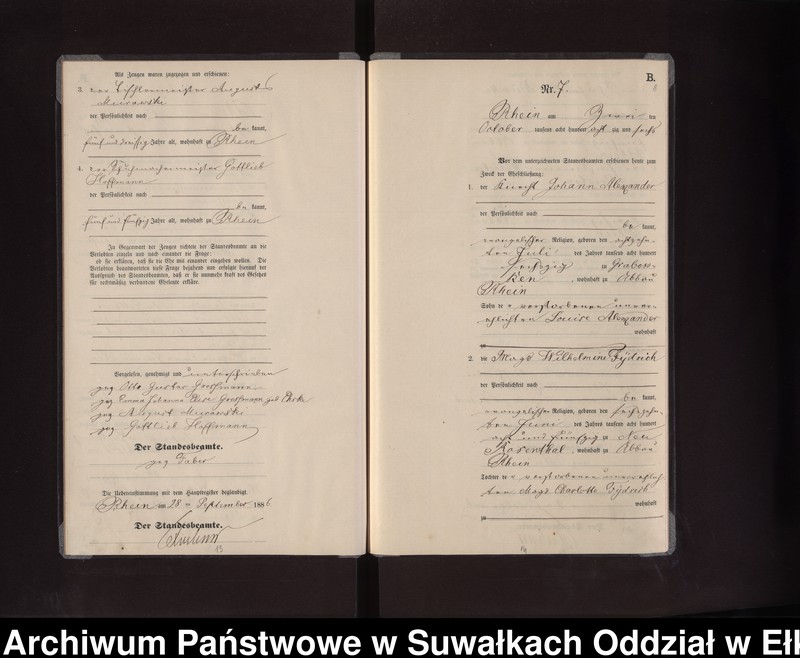 Als Zeugen waren zugezogen und erschienen:
3. der Tischlermeister August
Murawski
der Persönlichkeit nach
be kannt,
fünf und dreißig Jahre alt, wohnhaft zu Rhein
4. der Schuhmachermeister Gottlieb
Hoffmann
der Persönlichkeit nach
be kannt,
fünf und fünfzig Jahre alt, wohnhaft zu Rhein
In Gegenwart der Zeugen richtete der Standesbeamte an die
Verlobten einzeln und nach einander die Frage:
ob sie erklären, daß sie die Ehe mit einander eingehen wollen. Die
Verlobten beantworteten diese Frage bejahend und erfolgte hierauf der
Ausspruch des Standesbeamten, daß er sie nunmehr kraft des Gesetzes
für rechtmäßig verbundene Eheleute erkläre.
Vorgelesen, genehmigt und unterschrieben
gez Otto Gustav
gez Emma Johanna geb
gez August Murawski
gez Gottlieb Hoffmann
Der Standesbeamte.
gez Faber
Die Uebereinstimmung mit dem Hauptregister beglaubigt
Rhein am 28 ten September 1886
Der Standesbeamte.
13
B.
8
Nr. 7.
Rhein am Zwei ten
October tausend acht hundert acht zig und sechs
Vor dem unterzeichneten Standesbeamten erschienen heute zum
Zweck der Eheschließung:
1. der Knecht Johann Alexander
der Persönlichkeit nach
be kannt,
evangelischer Religion, geboren den achtzehn-
ten Juli des Jahres tausend acht hundert
sechszig zu Grabow-
ken, wohnhaft zu Abbau
Rhein
Sohn der verstorbenen unver-
ehelichten Louise Alexander
wohnhaft
zu
2. die Magd Wilhelmine Fydrich
der Persönlichkeit nach
be kannt,
evangelischer Religion, geboren den sechszehn-
ten Juni des Jahres tausend acht hundert
acht und fünfzig zu Neu
Rosenthal, wohnhaft zu Abbau
Rhein
Tochter der verstorbenen unverehelich-
ten Magd Charlotte Fydrich
wohnhaft
zu
14
Archiwum Państwowe w Suwałkach Oddział w Ełk